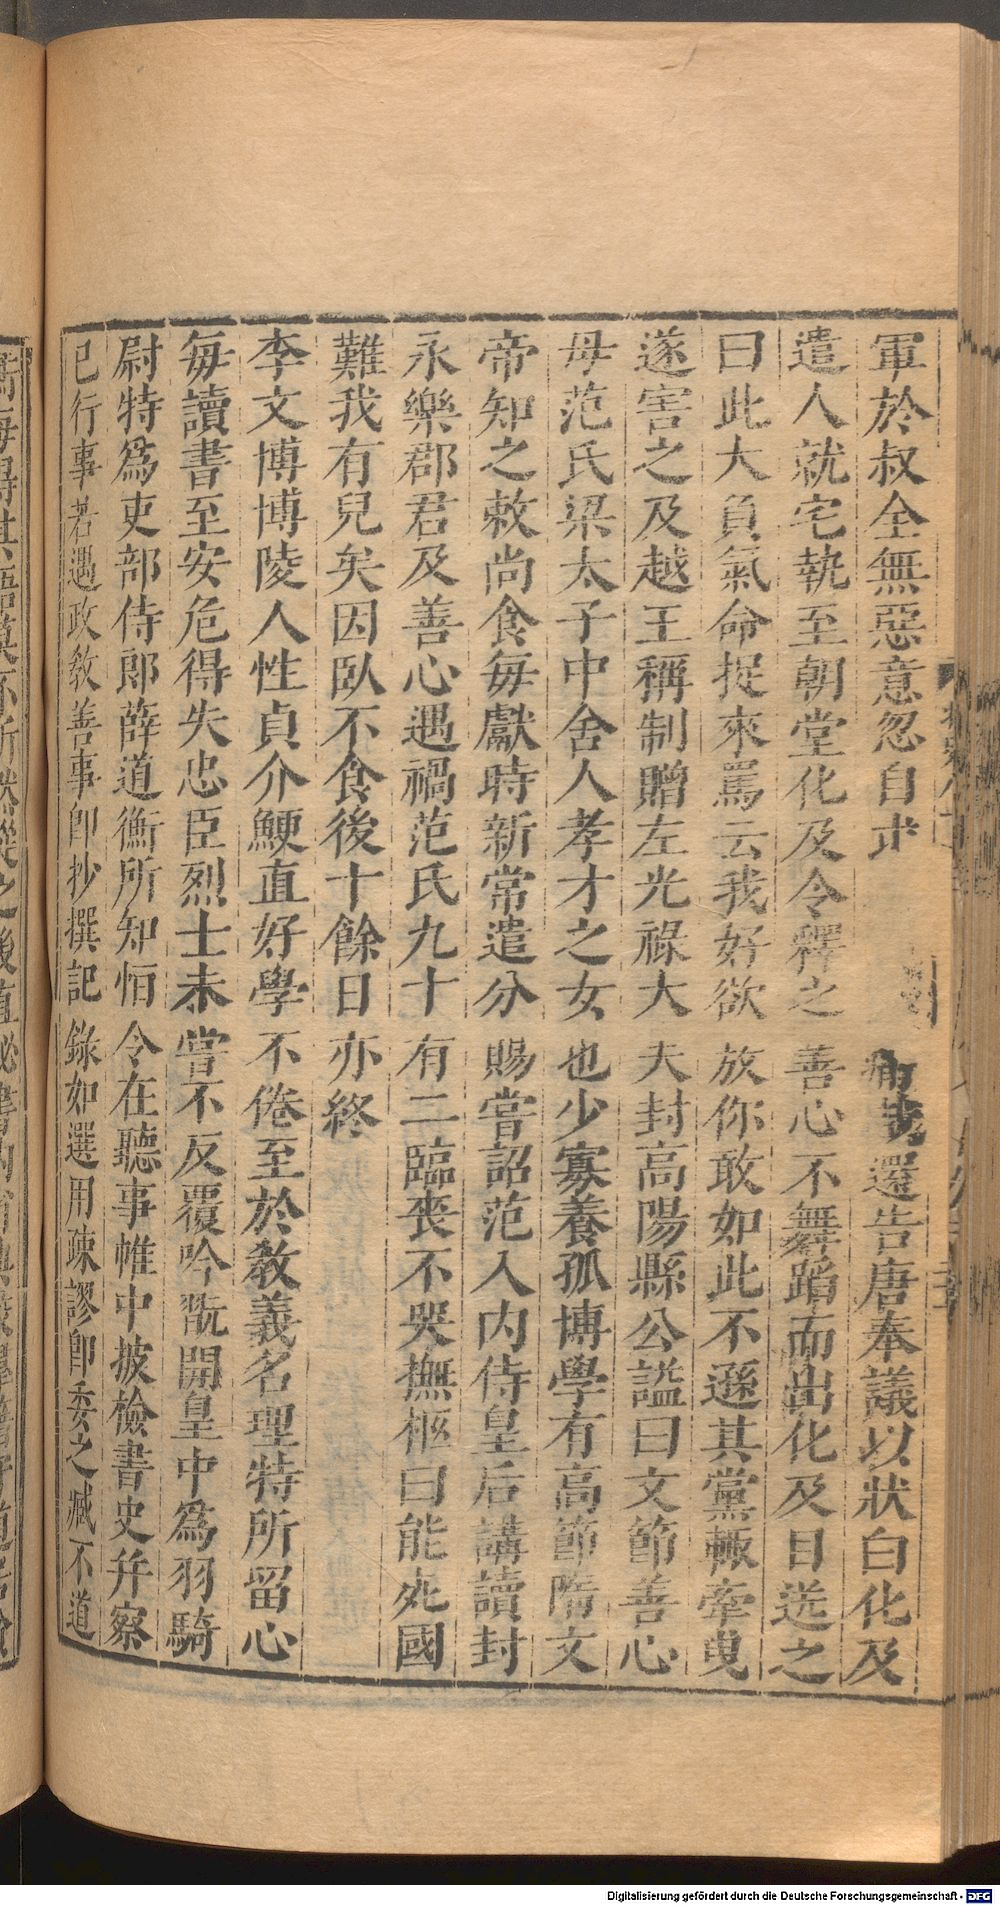 軍於叔全無惡意忽自求痛哉還告唐奉議以狀白化及
遣人就宅執至朝堂化及令釋之善心不舞蹈而出化及目送之
曰此大負氣命捉來罵云我好欲放你敢如此不遜其黨輙牽曳
遂害之及越王稱制贈左光祿大夫封高陽縣公諡曰文節善心
母范氏梁太子中舍人孝才之女也少寡養孤博學有高節隋文
帝知之敕尚食每獻時新常遣分賜嘗詔范入内侍皇后講讀封
永樂郡君及善心遇禍范氏九十有二臨喪不哭撫柩曰能死國
難我有兒矣因臥不食後十餘日亦終
李文博博陵人性貞介鯁直好學不倦至於教義名理特所留心
每讀書至安危得失忠臣烈士未嘗不反覆吟翫開皇中爲羽騎
尉特爲吏部侍郎薛道衡所知恒令在聽事帷中披檢書史并察
己行事若遇政教善事即抄撰記錄如選用疎謬即委之臧不道
Digitalisierung gefördert durch die Deutsche Forschungsgemeinschaft - DFG